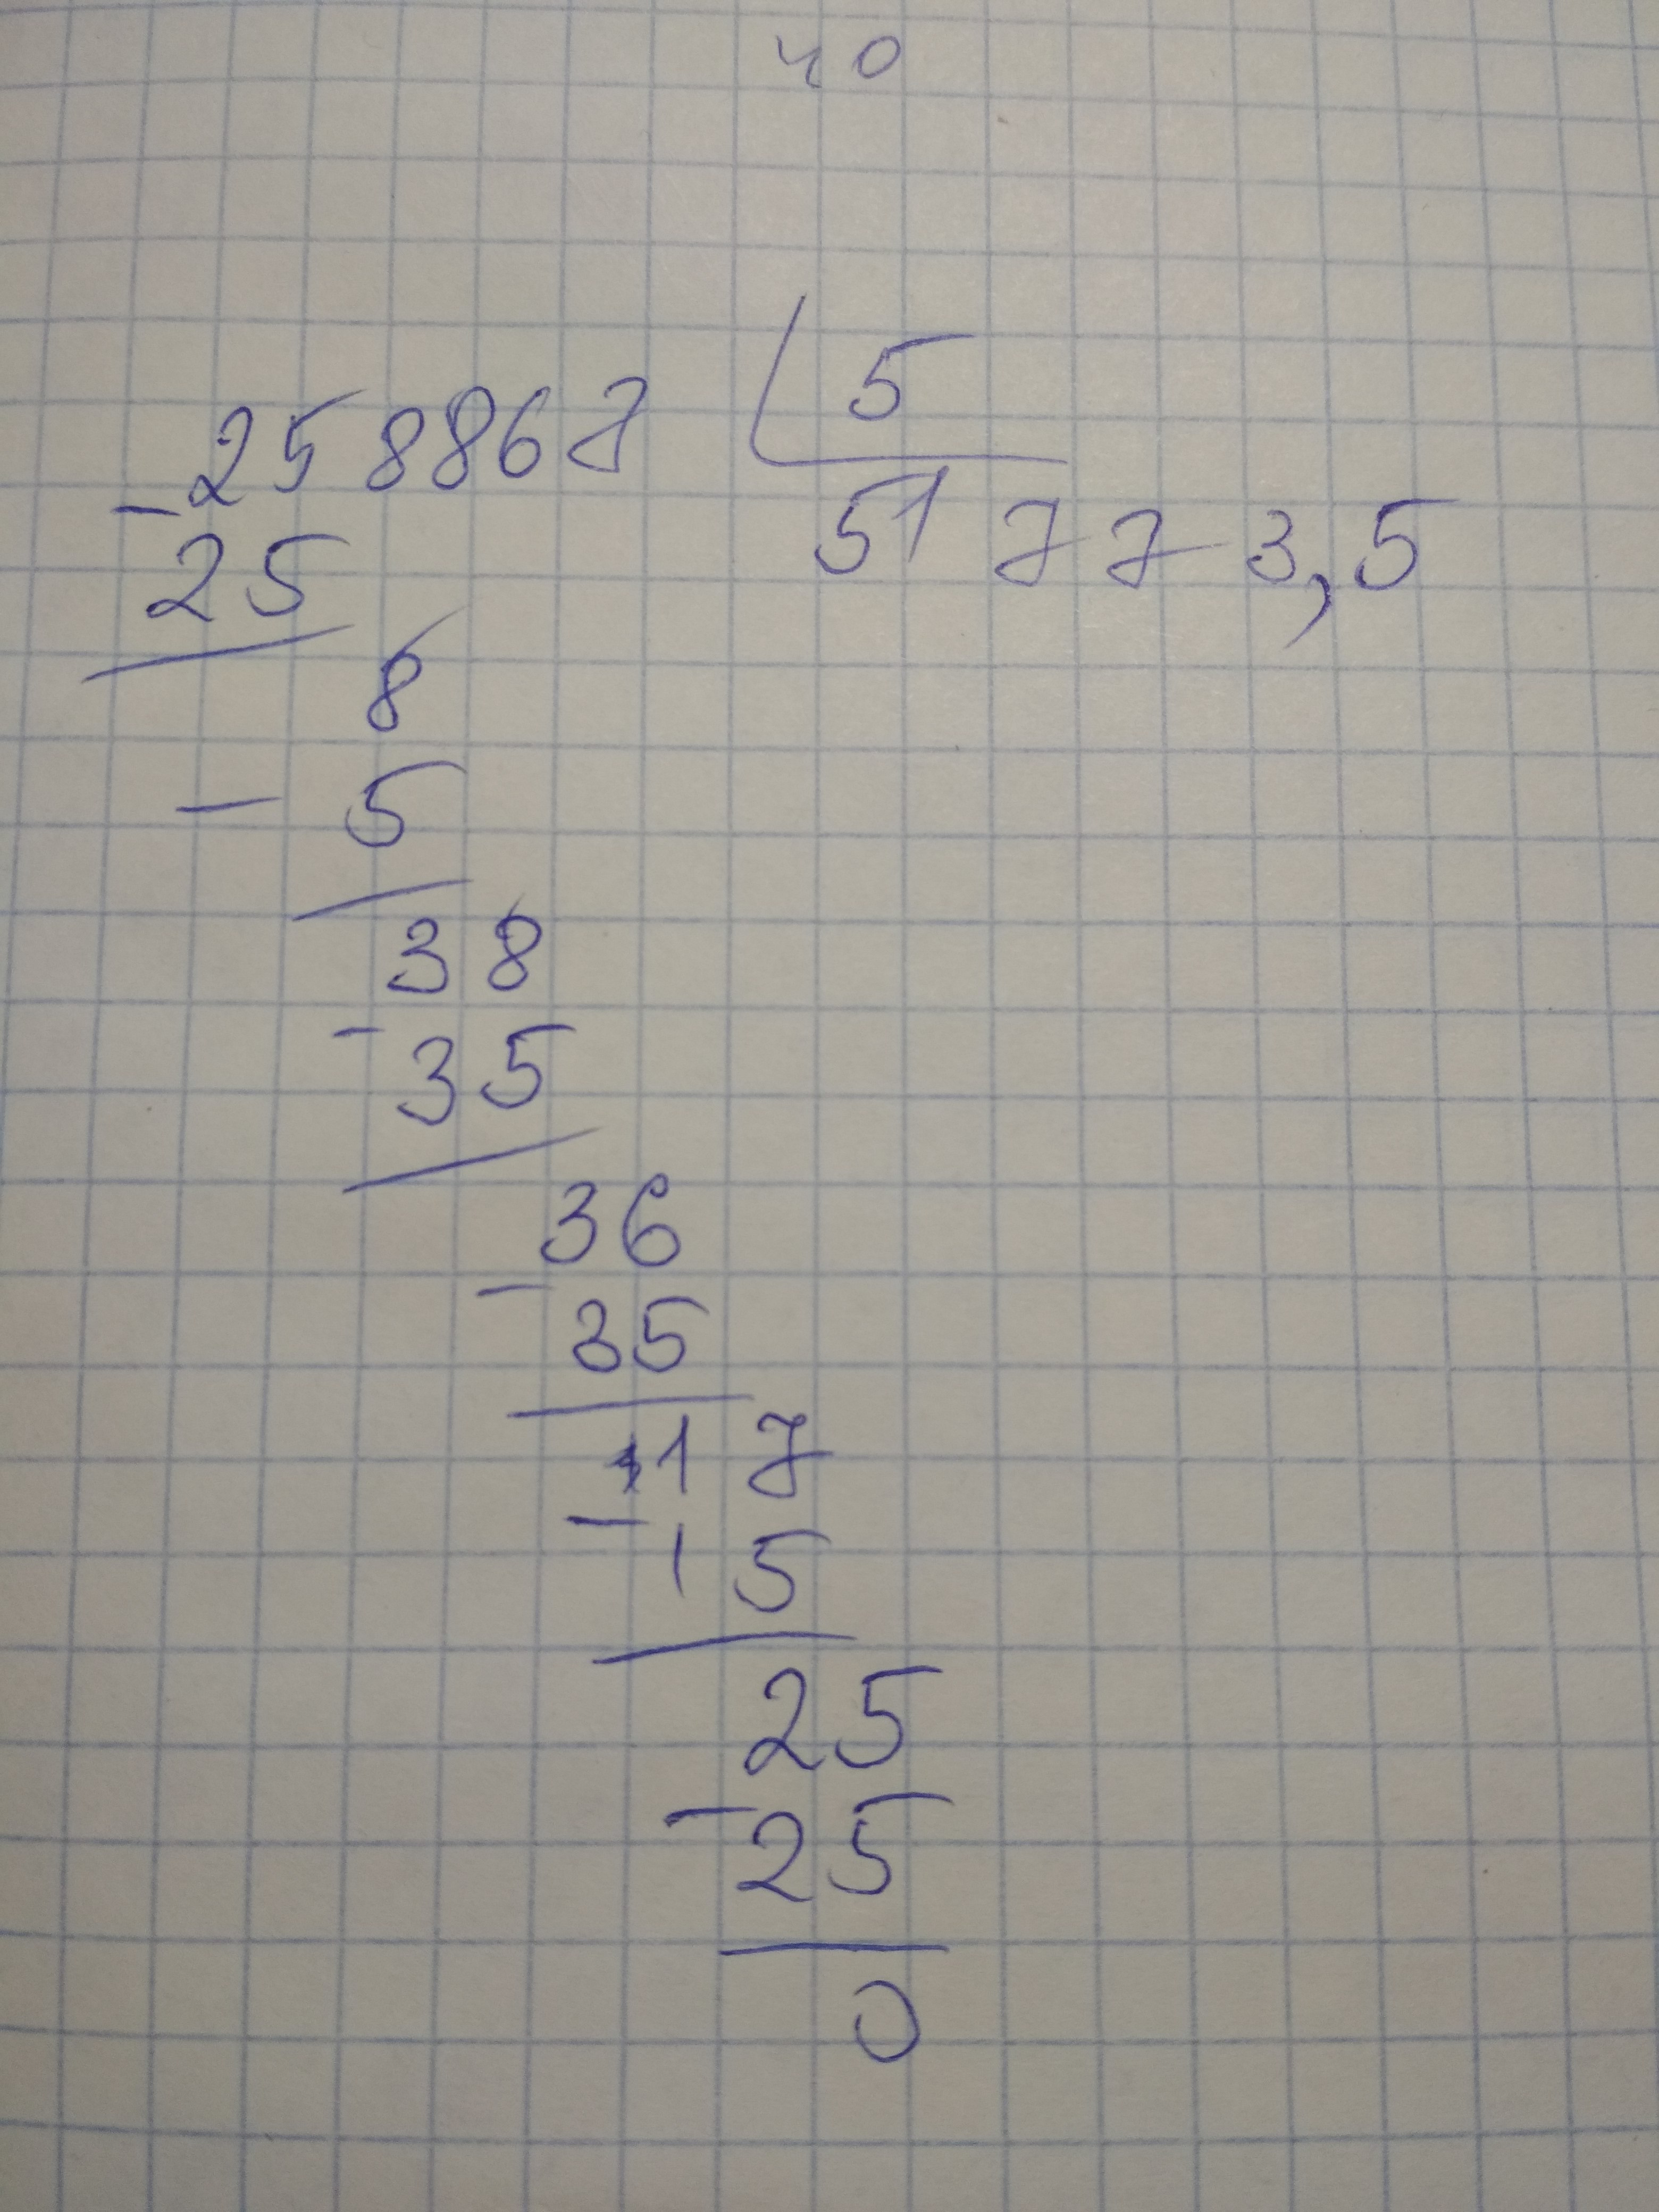 40
258867 5
- 25 51773,5
8
- 5
38
- 35
36
- 35
17
- 15
25
- 25
0